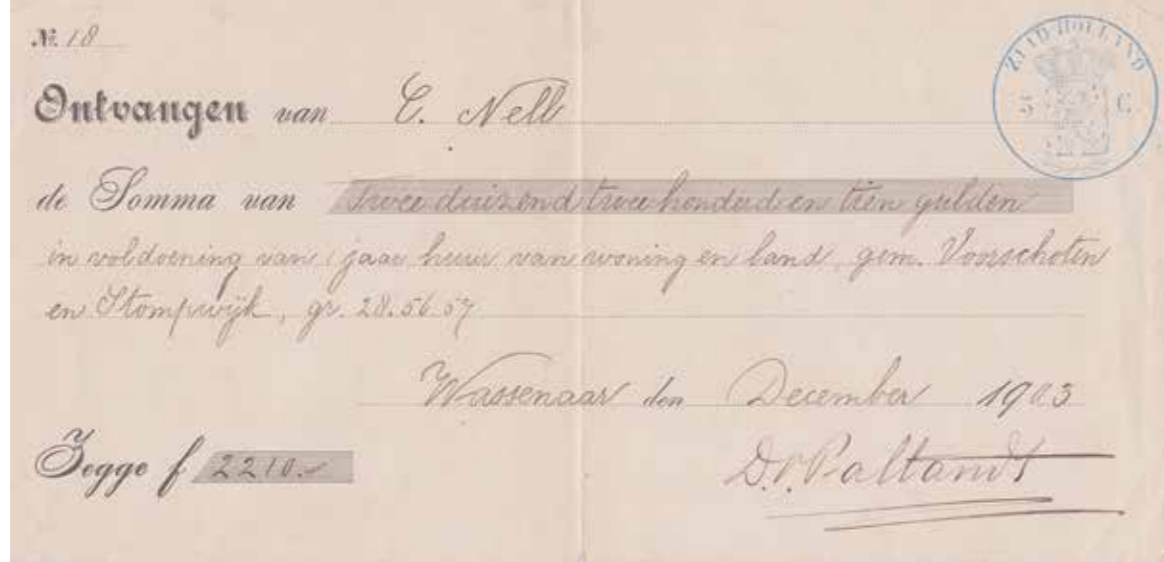 № 18
ZUID-HOLLAND
5 C.
Ontvangen van C. Nell
de Somma van Twee duizend twee honderd en tien gulden
in voldoening van 1 jaar huur van woning en land, gem. Voorschoten
en Stompwijk, gr. 28.56.57
Wassenaar den December 1903
Zegge f 2210.-
D.v. Pallandt